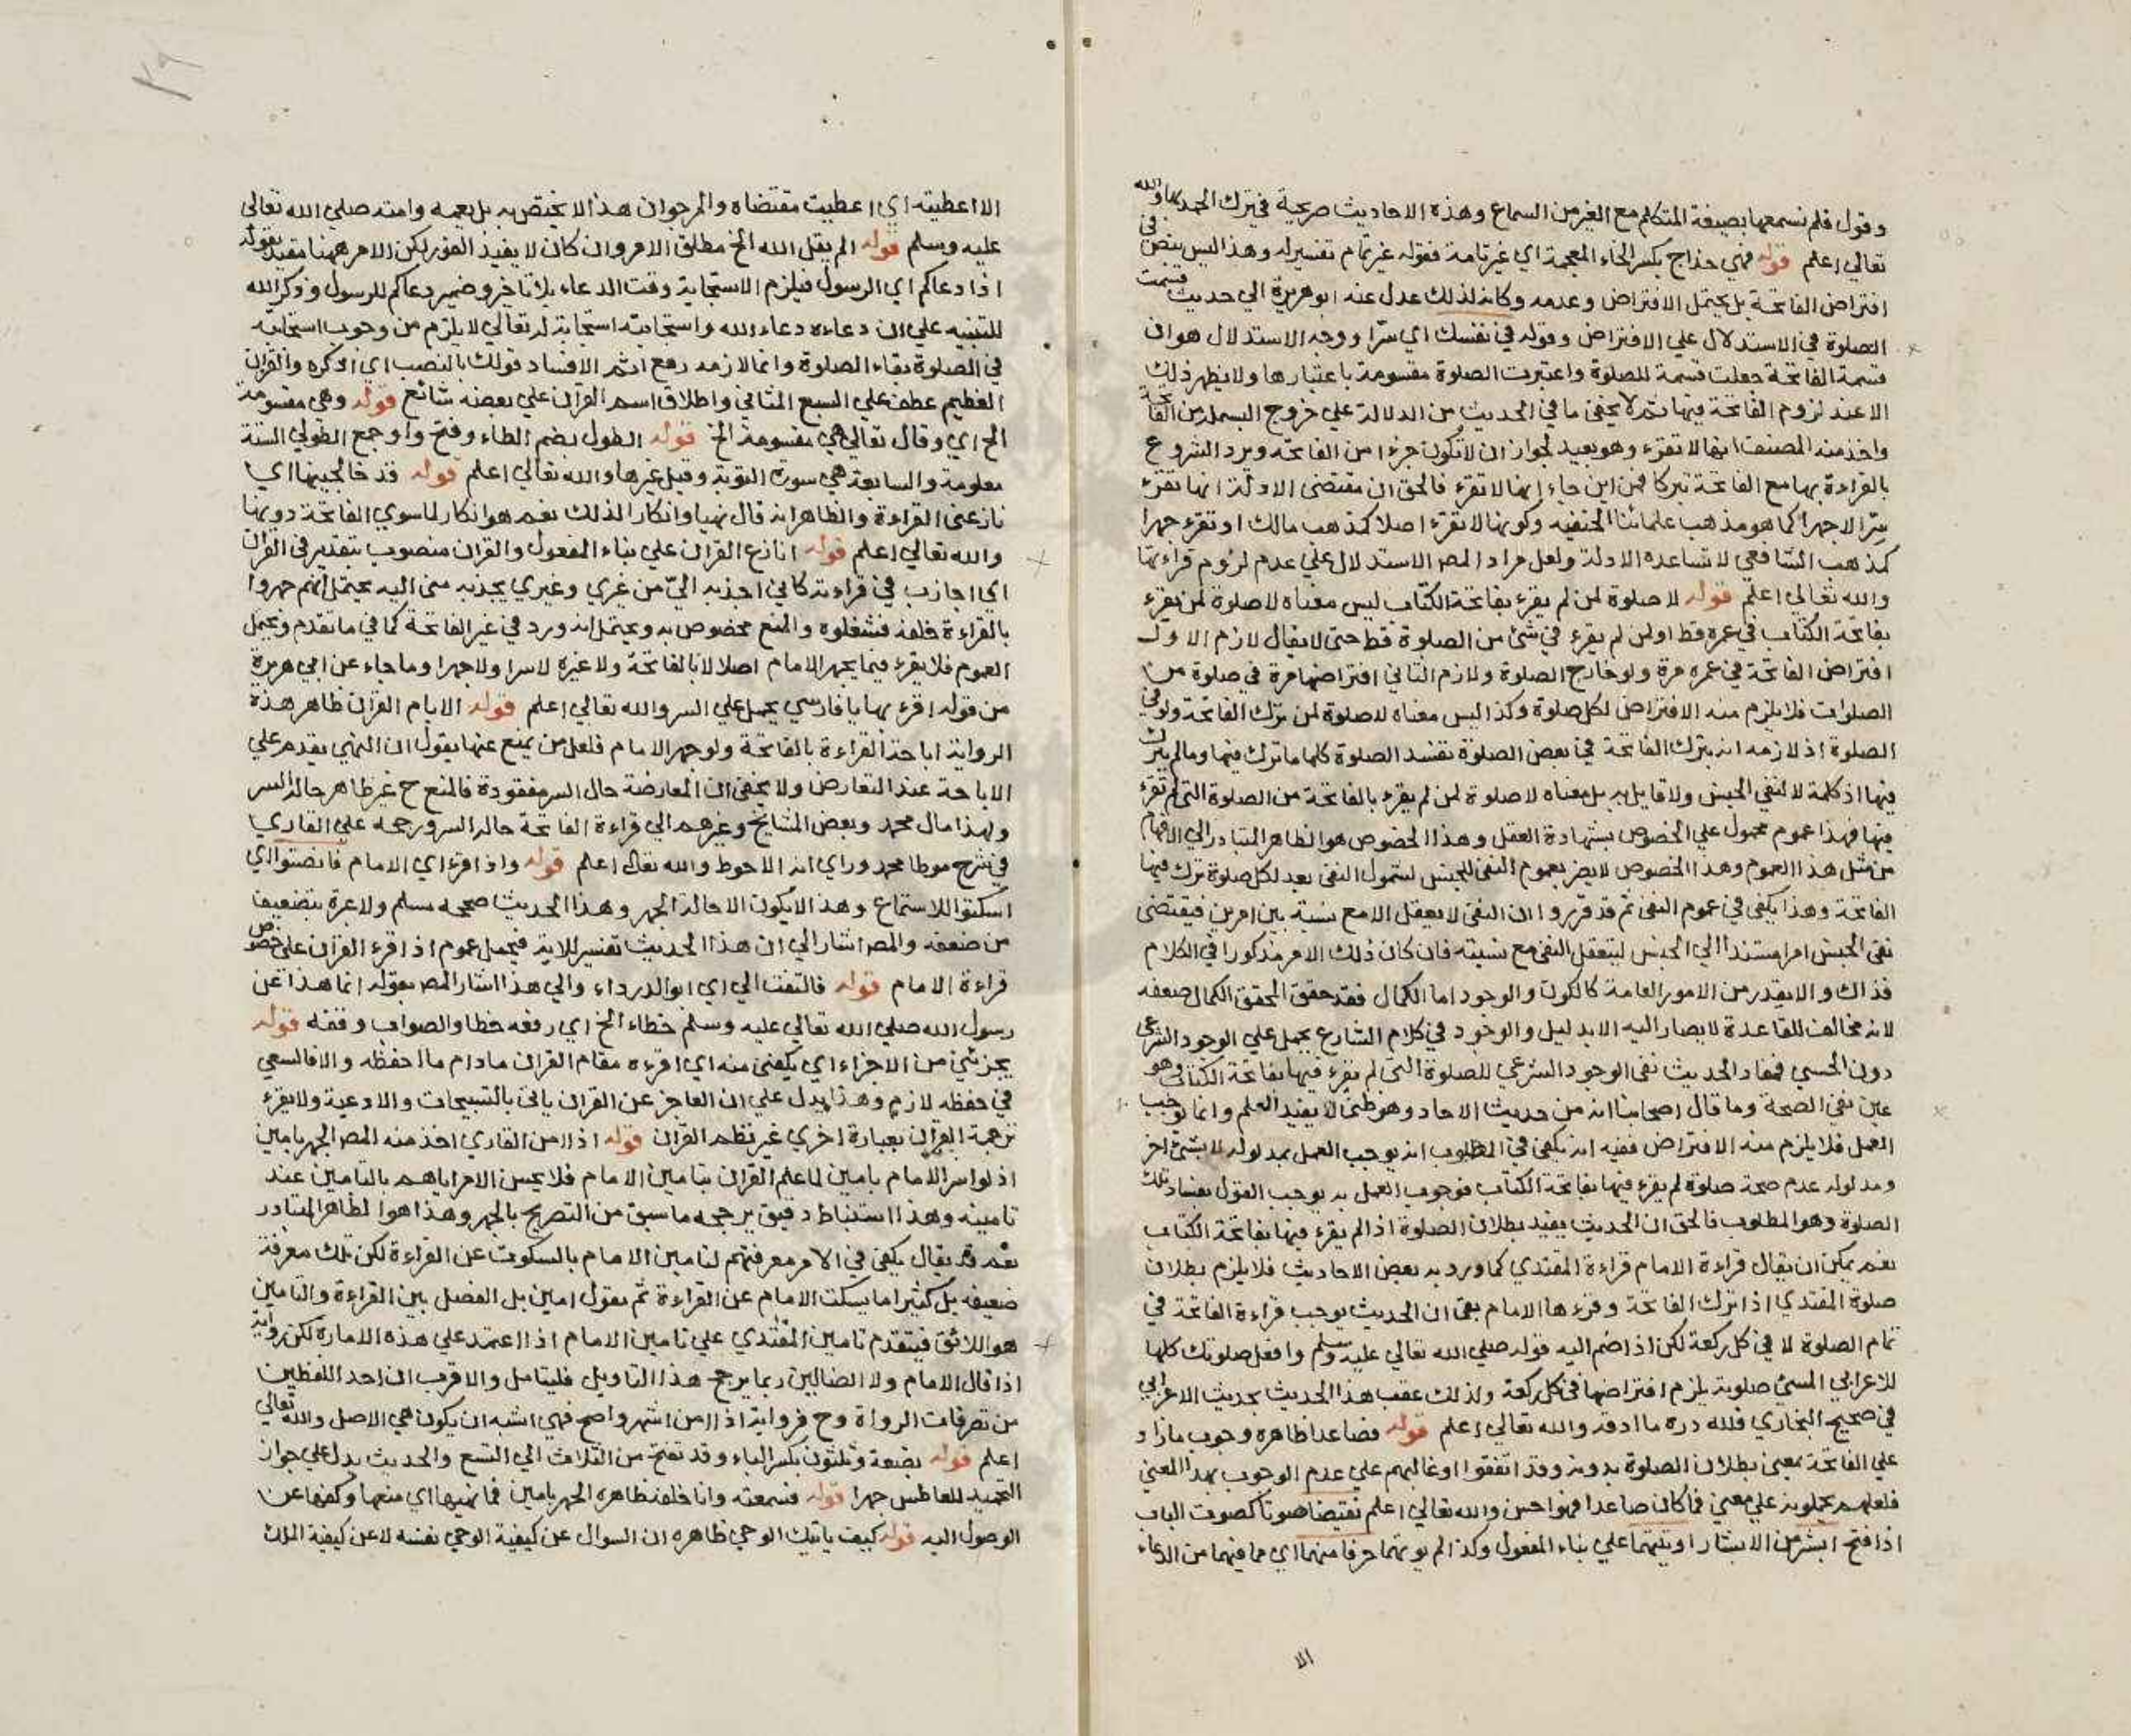 وقول فلم نسمعها بصيغة المتكلم مع الغير من السماع وهذه الاحاديث صريحة في ترك الجهر بها والله
تعالى اعلم قوله فهي خداج بكسر الخاء المعجمة اي غير تامة فقوله غير تمام تفسير له وهذا ليس بنص في
افتراض الفاتحة بل يحتمل الافتراض وعدمه وكانه لذلك عدل عنه ابو هريرة الى حديث قسمت
الصلوة في الاستدلال علي الافتراض وقوله في نفسك اي سرّا ووجه الاستدلال هو ان
قسمة الفاتحة جعلت قسمة للصلوة واعتبرت الصلوة مقسومة باعتبارها ولا يظهر ذلك
الا عند لزوم الفاتحة فيها ثم لا يخفى ما في الحديث من الدلالة علي خروج البسملة من الفاتحة
واخذ منه المصنف انها لا تقرء وهو بعيد لجواز ان لا تكون جزءا من الفاتحة ويرد الشروع
بالقراءة بها مع الفاتحة تبركا فمن اين جاء انها لا تقرء فالحق ان مقتضى الادلة انها تقرء
سرّا لا جهرا كما هو مذهب علمائنا الحنفيه وكونها لا تقرء اصلا كمذهب مالك او تقرء جهرا
كمذهب الشافعي لا تساعده الادلة ولعل مراد المصـ الاستدلال علي عدم لزوم قراءتها
والله تعالى اعلم قوله لا صلوة لمن لم يقرء بفاتحة الكتاب ليس معناه لا صلوة لمن لم يقرء
بفاتحة الكتاب في عمره قط او لمن لم يقرء في شئ من الصلوة قط حتى لا يقال لازم الاول
افتراض الفاتحة في عمره مرة ولو خارج الصلوة ولازم الثاني افتراضها مرة في صلوة من
الصلوات فلا يلزم منه الافتراض لكل صلوة وكذا ليس معناه لا صلوة لمن ترك الفاتحة ولو في
الصلوة اذ لازمه انه بترك الفاتحة في بعض الصلوة تفسد الصلوة كلها ما ترك فيها وما لم يترك
فيها اذ كلمة لا لنفي الجنس ولا قايل به بل معناه لا صلوة لمن لم يقرء بالفاتحة من الصلوة التي لم تقرء
فيها فهذا عموم محمول علي الخصوص بشهادة العقل وهذا الخصوص هو الظاهر المتبادر الى الافهام
من مثل هذا العموم وهذا الخصوص لا يضر بعموم النفي للجنس لشمول النفي بعد لكل صلوة ترك فيها
الفاتحة وهذا يكفي في عموم النفي ثم قد قرروا ان النفي لا يعقل الا مع نسبة بين امرين فيقتضي
نفي الجنس امرا مستندا الي الجنس ليتعقل النفي مع نسبته فان كان ذلك الامر مذكورا في الكلام
فذاك والا يقدر من الامور العامة كالكون والوجود اما الكمال فقد حقق المحقق الكمال ضعفه
لانه مخالف للقاعدة لا يصار اليه الا بدليل والوجود في كلام الشارع يحمل علي الوجود الشرعي
دون الحسي فمفاد الحديث نفي الوجود الشرعي للصلوة التي لم يقرء فيها بفاتحة الكتاب وهو
عين نفي الصحة وما قال اصحابنا انه من حديث الاحاد وهو ظني لا يفيد العلم وانما يوجب
العمل فلا يلزم منه الافتراض ففيه انه يكفي في المطلوب انه يوجب العمل بمدلوله لا بشئ اخر
ومدلوله عدم صحة صلوة لم يقرء فيها بفاتحة الكتاب فوجوب العمل به يوجب القول بفساد تلك
الصلوة وهو المطلوب فالحق ان الحديث يفيد بطلان الصلوة اذا لم يقرء فيها بفاتحة الكتاب
نعم يمكن ان يقال قراءة الامام قراءة المقتدي كما ورد به بعض الاحاديث فلا يلزم بطلان
صلوة المقتدي اذا ترك الفاتحة وقرءها الامام بقي ان الحديث يوجب قراءة الفاتحة في
تمام الصلوة لا في كل ركعة لكن اذا ضم اليه قوله صلي الله تعالي عليه وسلم وافعل صلوتك كلها
للاعرابي المسئ صلوته يلزم افتراضها في كل ركعة ولذلك عقب هذا الحديث بحديث الاعرابي
في صحيح البخاري فلله دره ما ادقه والله تعالي اعلم قوله فصاعدا ظاهره وجوب مازاد
علي الفاتحة بمعنى بطلان الصلوة بدونه وقد اتفقوا او غالبهم علي عدم الوجوب بهذا المعني
فلعلهم يحملونه علي معني فما كان صاعدا فهو احسن والله تعالي اعلم نقيضا صوتا كصوت الباب
اذا فتح ابشر من الابشار اوتيتهما علي بناء المفعول وكذا لم يوتهما حرفا منهما اي مما فيهما من الدعاء
الا
الا اعطيته اي اعطيت مقتضاه والمرجو ان هذا لا يختص به بل يعمه وامته صلي الله تعالى
عليه وسلم قوله الم يقل الله الخ مطلق الامر وان كان لا يفيد الفور لكن الامر ههنا مقيد بقوله
اذا دعاكم اي الرسول فيلزم الاستجابة وقت الدعاء بلا تاخر وضمير دعاكم للرسول وذكر الله
للتنبيه علي ان دعاءه دعاء الله واستجابته استجابة له تعالي لا يلزم من وجوب استجابته
في الصلوة بقاء الصلوة وانما لازمه رفع اثم الافساد قولك بالنصب اي اذكره والقران
العظيم عطف علي السبع المثاني واطلاق اسم القران علي بعضه شائع قوله وهي مقسومة
الخ اي وقال تعالي هي مقسومة الخ قوله الطول بضم الطاء وفتح واو جمع الطولي الستة
معلومة والسابعة هي سورة التوبة وقيل غيرها والله تعالي اعلم قوله قد خالجنيها اي
نازعني القراءة والظاهر انه قال نهيا وانكارا لذلك نعم هو انكار لما سوي الفاتحة دونها
والله تعالي اعلم قوله انازع القران علي بناء المفعول والقران منصوب بتقدير في القران
اي اجاذب في قراءته كاني اجذبه اليّ من غيري وغيري يجذبه مني اليه يحتمل انهم جهروا
بالقراءة خلفه فشغلوه والمنع مخصوص به ويحتمل انه ورد في غير الفاتحة كما في ما تقدم ويحتمل
العموم فلا يقرء فيما يجهر الامام اصلا لا بالفاتحة ولا غيره لا سرا ولا جهرا وما جاء عن ابي هريرة
من قوله اقرء بها يا فارسي يحمل علي السر والله تعالي اعلم قوله الا بام القران ظاهر هذه
الرواية اباحة القراءة بالفاتحة ولو جهر الامام فلعل من يمنع عنها يقول ان النهي يقدم علي
الاباحة عند التعارض ولا يخفى ان المعارضة حال السر مفقودة فالمنع ح غير ظاهر حالة السر
ولهذا مال محمد وبعض المشايخ وغيرهم الي قراءة الفاتحة حالة السر ورجحه علي القاري
في شرح موطا محمد وراي انه الاحوط والله تعالى اعلم قوله واذا قرء اي الامام فانصتوا اي
اسكتوا للاستماع وهذا لا يكون الا حالة الجهر وهذا الحديث صححه مسلم ولا عبرة بتضعيف
من ضعفه والمصـ اشار الي ان هذا الحديث تفسير للاية فيحمل عموم اذا قرء القران علي خصوص
قراءة الامام قوله فالتفت الي اي ابو الدرداء والي هذا اشار المصـ بقوله انما هذا عن
رسول الله صلي الله تعالي عليه وسلم خطاء الخ اي رفعه خطا والصواب وقفه قوله
يجزئني من الاجزاء اي يكفيني منه اي اقرءه مقام القران مادام ما احفظه والا فالسعي
في حفظه لازم وهذا يدل علي ان العاجز عن القران ياتي بالتسبيحات والادعية ولا يقرء
ترجمة القران بعبارة اخري غير نظم القران قوله اذا امن القاري اخذ منه المصـ الجهر بامين
اذ لو اسر الامام بامين لما علم القران بتامين الامام فلا يحسن الامر اياهم بالتامين عند
تامينه وهذا استنباط دقيق يرجحه ما سبق من التصريح بالجهر وهذا هو الظاهر المتبادر
نعم قد يقال يكفي في الامر معرفتهم لتامين الامام بالسكوت عن القراءة لكن تلك معرفة
ضعيفة بل كثيرا ما يسكت الامام عن القراءة ثم يقول امين بل الفصل بين القراءة والتامين
هو اللائق فيتقدم تامين المقتدي علي تامين الامام اذا اعتمد علي هذه الامارة لكن رواية
اذا قال الامام ولا الضالين ربما يرجح هذا التاويل فليتامل والاقرب ان احد اللفظين
من تصرفات الرواة وح فرواية اذا امن اشهر واصح فهي اشبه ان يكون هي الاصل والله تعالي
اعلم قوله بضعة وثلثون بكسر الباء وقد تفتح من الثلاث الي التسع والحديث يدل علي جواز
التحميد للعاطس جهرا قوله فسمعته وانا خلفه ظاهره الجهر بامين فما نهنهها اي منعها وكفها عن
الوصول اليه قوله كيف ياتيك الوحي ظاهره ان السوال عن كيفية الوحي نفسه لا عن كيفية الملك